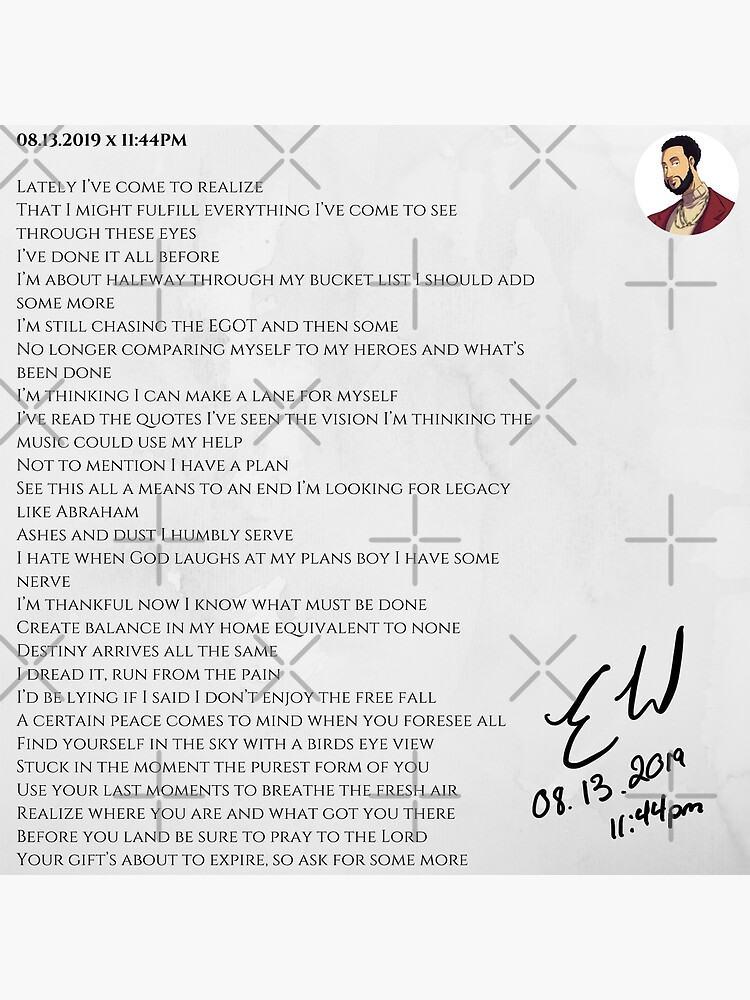 08.13.2019 x 11:44PM
Lately I've come to realize
That I might fulfill everything I've come to see
through these eyes
I've done it all before
I'm about halfway through my bucket list I should add
some more
I'm still chasing the EGOT and then some
No longer comparing myself to my heroes and what's
been done
I'm thinking I can make a lane for myself
I've read the quotes I've seen the vision I'm thinking the
music could use my help
Not to mention I have a plan
See this all a means to an end I'm looking for legacy
like Abraham
Ashes and dust I humbly serve
I hate when God laughs at my plans boy I have some
nerve
I'm thankful now I know what must be done
Create balance in my home equivalent to none
Destiny arrives all the same
I dread it, run from the pain
I'd be lying if I said I don't enjoy the free fall
A certain peace comes to mind when you foresee all
Find yourself in the sky with a birds eye view
Stuck in the moment the purest form of you
Use your last moments to breathe the fresh air
Realize where you are and what got you there
Before you land be sure to pray to the Lord
Your gift's about to expire, so ask for some more
EW
08.13.2019
11:44pm